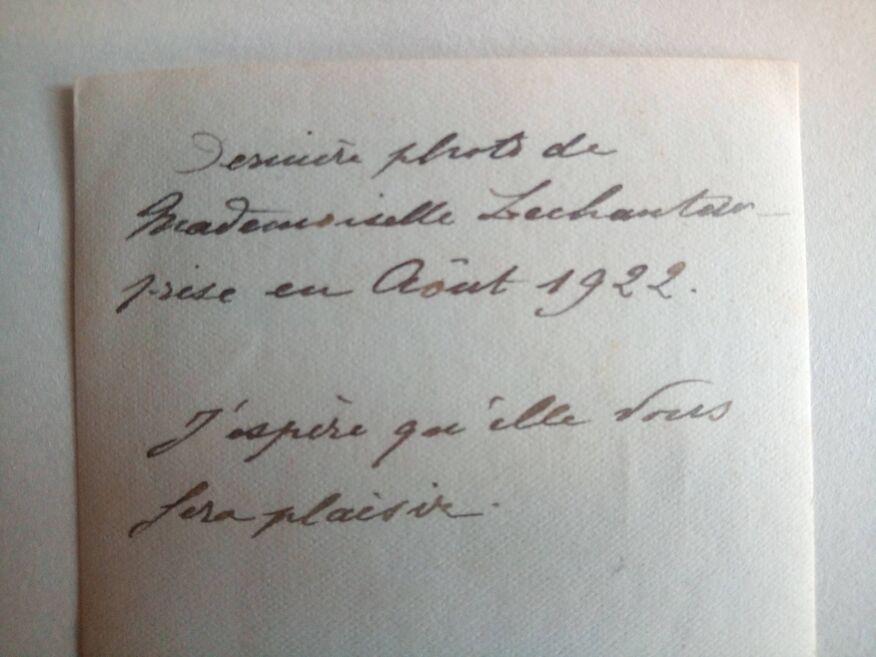 Dernière photo de
Mademoiselle Lechanteur
prise en Août 1922.
J'espère qu'elle vous
fera plaisir.